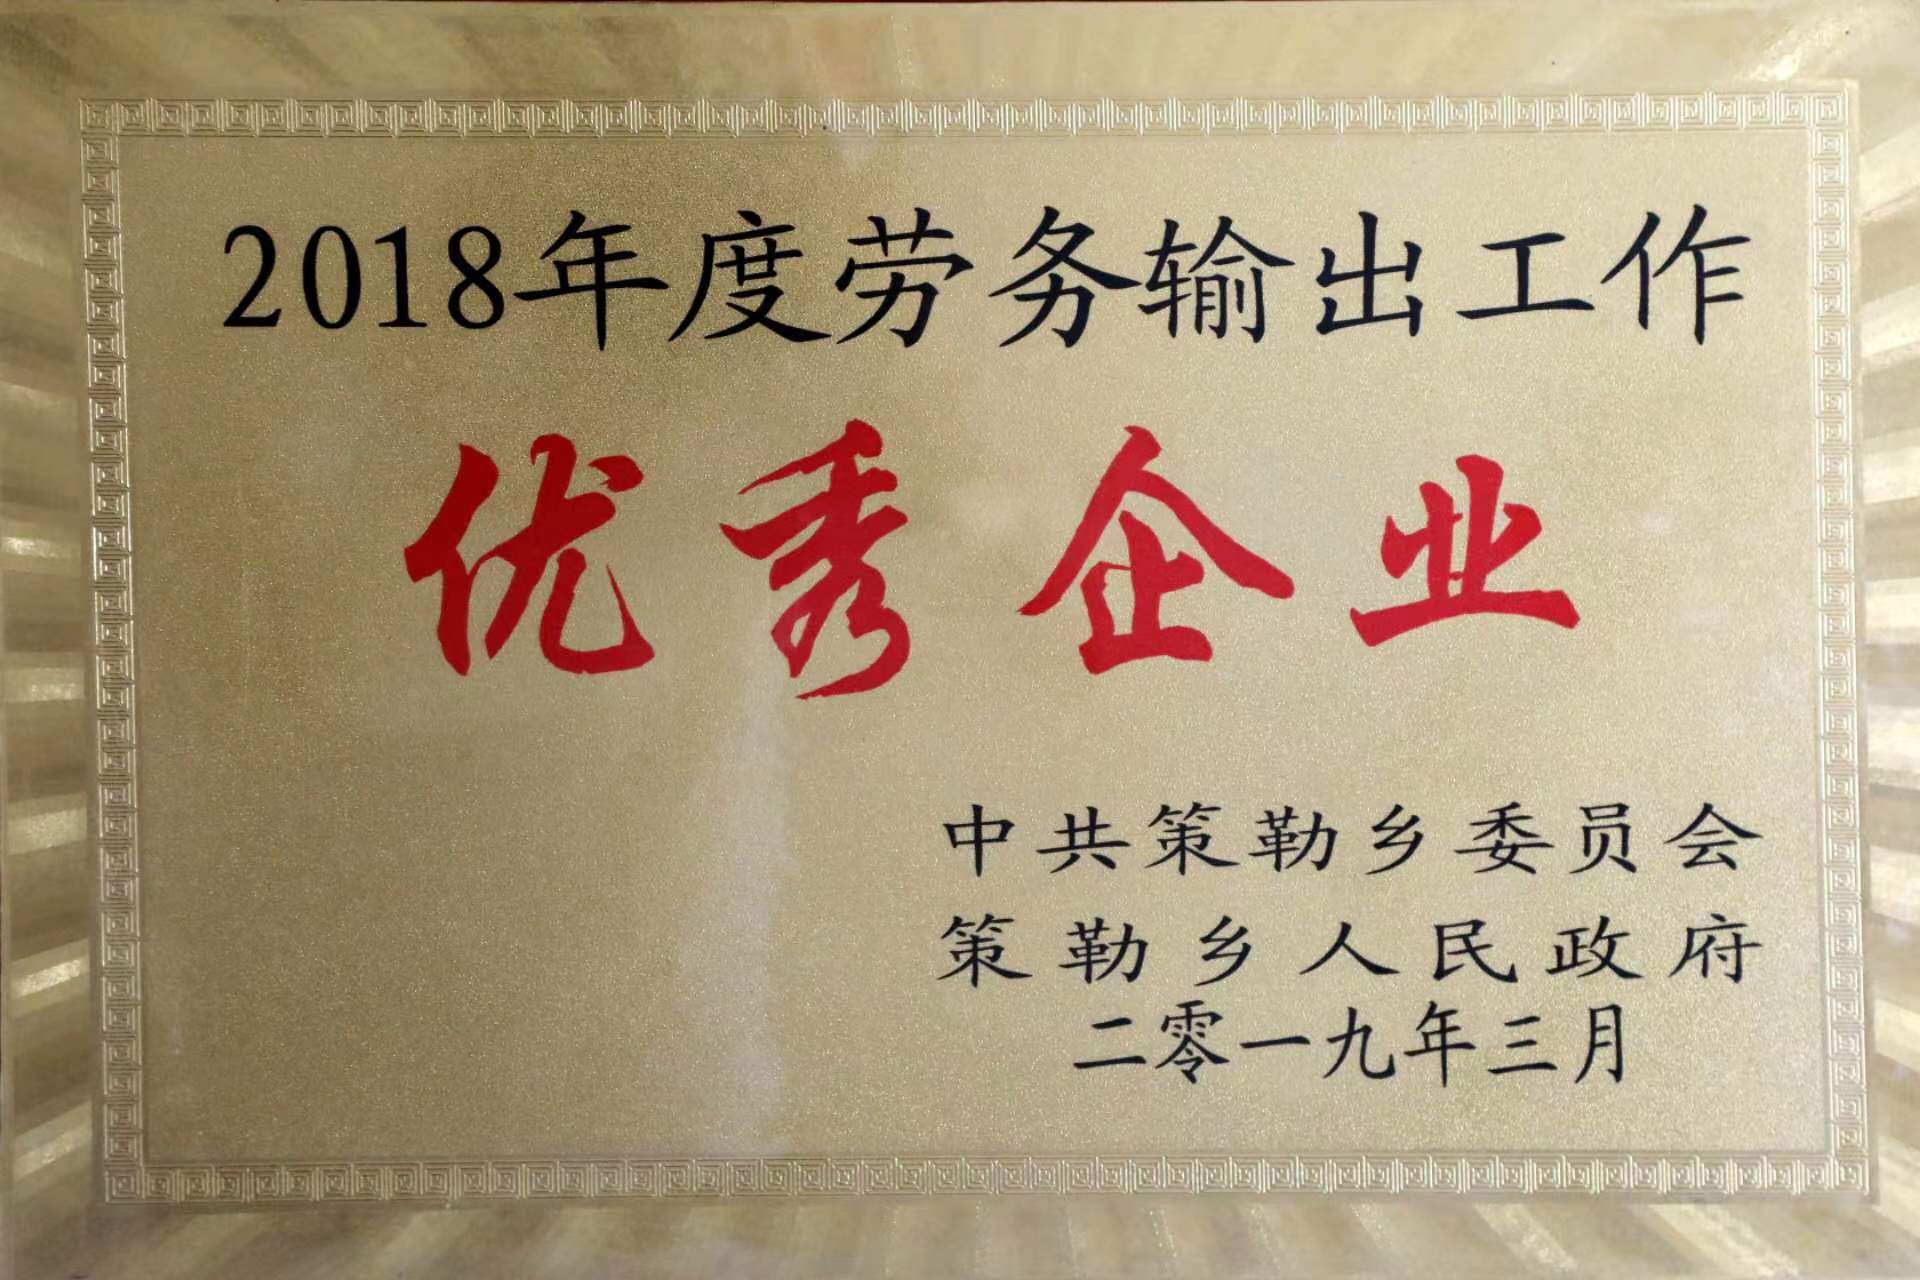 2018年度劳务输出工作
优秀企业
中共策勒乡委员会
策勒乡人民政府
二零一九年三月